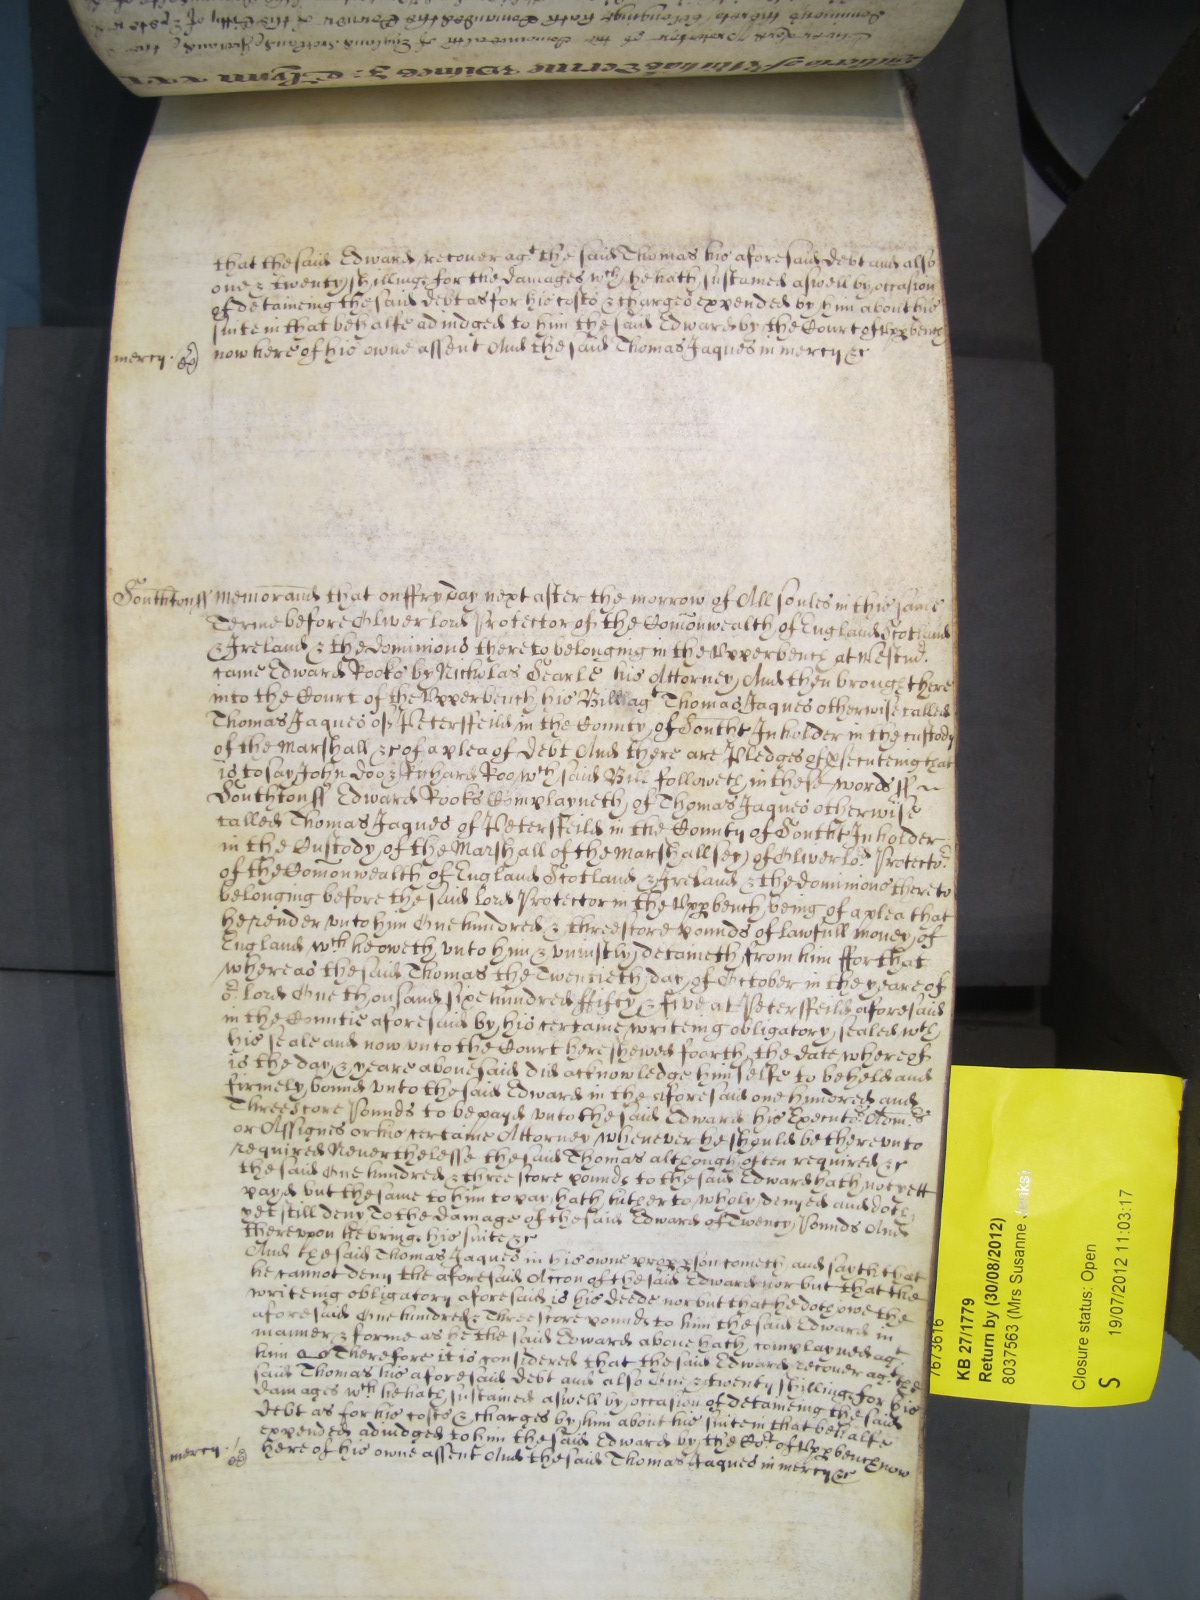 that the said Edward recover agt the said Thomas his aforesaid debt and also
one & twenty shillings for the damages wch he hath sustained aswell by occasion
of detaineing the said debt as for his costs & charges expended by him about his
suite in that behalfe adiudged to him the said Edward by the Court of Upp bench
mercy. now here of his owne assent And the said Thomas Jaques in mercy &c
Southtonss Memorand that on ffryday next after the morrow of All soules in this same
Terme before Oliver Lord Protector of the Comonwealth of England Scotland
& Ireland & the dominions thereto belonging in the Upper bench at Westmr.
came Edward Rooks by Nicholas Searle his Attorney And then brought here
into the Court of the Upper bench his Bill agt Thomas Jaques otherwise called
Thomas Jaques of Petersfeild in the County of Southt Inholder in the custody
of the Marshall &c of a plea of debt And there are Pledges of psecuteing that
is to say John Doo & Rychard Roo wch said Bill followeth in these words ss
Southtonss Edward Rooks Complayneth of Thomas Jaques otherwise
called Thomas Jaques of Petersfeild in the County of Southt Inholder
in the Custody of the Marshall of the Marshallsey of Oliver Lord Protector
of the Comonwealth of England Scotland & Ireland & the dominions thereto
belonging before the said Lord Protector in the Upp bench being of a plea that
he render unto him One hundred & threescore pounds of lawfull money of
England wch he oweth unto him & uniustly detaineth from him ffor that
whereas the said Thomas the Twentieth day of October in the yeare of
or lord One thousand six hundred ffifty & five at Petersfeild aforesaid
in the Countie aforesaid by his certaine writeing obligatory sealed wth
his seale and now unto the Court here shewed foorth the date whereof
is the day & yeare abovesaid did acknowledge himselfe to be held and
firmely bound unto the said Edward in the aforesaid one hundred and
Threescore Pounds to be payd unto the said Edward his Executrs Admrs
or Assignes or his certaine Attorney whenever he should be thereunto
required Neverthelesse the said Thomas although often required &c
the said One hundred & threescore pounds to the said Edward hath not yett
payd but the same to him to pay hath hitherto wholy denyed and doth
yet still deny To the damage of the said Edward of Twenty Pounds And
thereupon he brings his suite &c
And the said Thomas Jaques in his owne pson cometh and sayth that
he cannot deny the aforesaid Accon of the said Edward nor but that the
writeing obligatory aforesaid is his deede nor but that he doth owe the
aforesaid One hundred & Threescore pounds to him the said Edward in
manner & forme as he the said Edward above hath complayned agt
him Therefore it is considered that the said Edward recover agt the
said Thomas his aforesaid debt and also One & twenty shillings for his
damages wch he hath sustained aswell by occasion of detaineing the said
debt as for his costs & charges by him about his suite in that behalfe
expended adiudged to him the said Edward by the Cort of Upp bench now
mercy. here of his owne assent And the said Thomas Jaques in mercy &c
7673616
KB 27/1779
Return by (30/08/2012)
8037563 (Mrs Susanne
Closure status: Open
S 19/07/2012 11:03:17